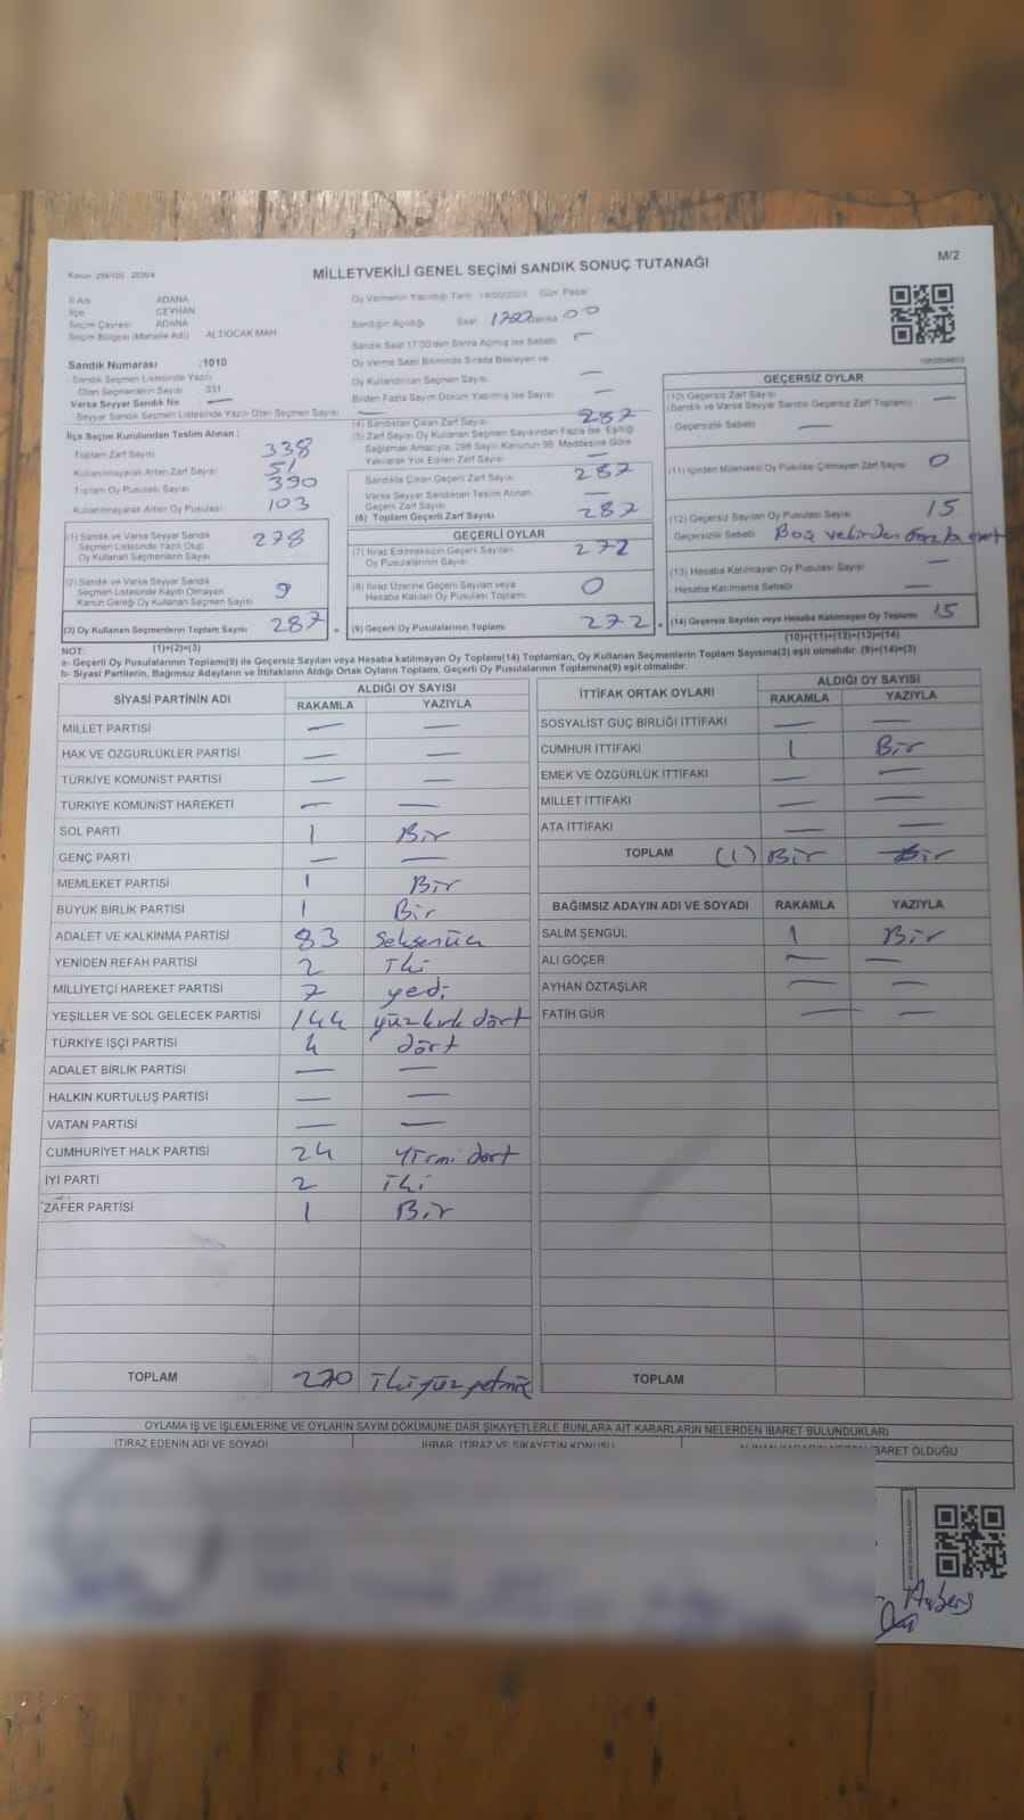 M/2
MİLLETVEKİLİ GENEL SEÇİMİ SANDIK SONUÇ TUTANAĞI
İli Adı ADANA
İlçe CEYHAN
Seçim Çevresi ADANA
Seçim Bölgesi (Mahalle Adı) ALTIOCAK MAH
Sandık Numarası :1010
Sandık Seçmen Listesinde Yazılı
Olan Seçmenlerin Sayısı 331
Varsa Seyyar Sandık No —
Seyyar Sandık Seçmen Listesinde Yazılı Olan Seçmen Sayısı
İlçe Seçim Kurulundan Teslim Alınan :
Toplam Zarf Sayısı 338
Kullanılmayarak Artan Zarf Sayısı 51
Toplam Oy Pusulası Sayısı 390
Kullanılmayarak Artan Oy Pusulası 103
(1) Sandık ve Varsa Seyyar Sandık
Seçmen Listesinde Yazılı Olup
Oy Kullanan Seçmenlerin Sayısı 278
(2) Sandık ve Varsa Seyyar Sandık
Seçmen Listesinde Kayıtlı Olmayan
Kanun Gereği Oy Kullanan Seçmen Sayısı 9
(3) Oy Kullanan Seçmenlerin Toplam Sayısı 287
(1)+(2)=(3)
Oy Vermenin Yapıldığı Tarih 14/05/2023 Gün Pazar
Sandığın Açıldığı Saat
Sandık Saat 17:00'den Sonra Açılmış İse Sebebi
Oy Verme Saati Bitiminde Sırada Bekleyen ve
Oy Kullandırılan Seçmen Sayısı —
Birden Fazla Sayım Döküm Yapılmış İse Sayısı —
(4) Sandıktan Çıkan Zarf Sayısı 287
(5) Zarf Sayısı Oy Kullanan Seçmen Sayısından Fazla İse, Eşitliği
Sağlamak Amacıyla, 298 Sayılı Kanunun 98. Maddesine Göre
Yakılarak Yok Edilen Zarf Sayısı —
Sandıkta Çıkan Geçerli Zarf Sayısı 287
Varsa Seyyar Sandıktan Teslim Alınan
Geçerli Zarf Sayısı —
(6) Toplam Geçerli Zarf Sayısı 287
GEÇERLİ OYLAR
(7) İtiraz Edilmeksizin Geçerli Sayılan
Oy Pusulalarının Sayısı 272
(8) İtiraz Üzerine Geçerli Sayılan veya
Hesaba Katılan Oy Pusulası Toplamı 0
(9) Geçerli Oy Pusulalarının Toplamı 272
GEÇERSİZ OYLAR
(10) Geçersiz Zarf Sayısı
(Sandık ve Varsa Seyyar Sandık Geçersiz Zarf Toplamı) —
Geçersizlik Sebebi —
(11) İçinden Milletvekili Oy Pusulası Çıkmayan Zarf Sayısı 0
(12) Geçersiz Sayılan Oy Pusulası Sayısı 15
Geçersizlik Sebebi Boş ve birden fazla
(13) Hesaba Katılmayan Oy Pusulası Sayısı —
Hesaba Katılmama Sebebi —
(14) Geçersiz Sayılan veya Hesaba Katılmayan Oy Toplamı 15
(10)+(11)+(12)+(13)=(14)
NOT:
a- Geçerli Oy Pusulalarının Toplamı(9) ile Geçersiz Sayılan veya Hesaba katılmayan Oy Toplamı(14) Toplamları, Oy Kullanan Seçmenlerin Toplam Sayısına(3) eşit olmalıdır. (9)+(14)=(3)
b- Siyasi Partilerin, Bağımsız Adayların ve İttifakların Aldığı Ortak Oyların Toplamı, Geçerli Oy Pusulalarının Toplamına(9) eşit olmalıdır.
SİYASİ PARTİNİN ADI ALDIĞI OY SAYISI
RAKAMLA YAZIYLA
MİLLET PARTİSİ — —
HAK VE ÖZGÜRLÜKLER PARTİSİ — —
TÜRKİYE KOMÜNİST PARTİSİ — —
TÜRKİYE KOMÜNİST HAREKETİ — —
SOL PARTİ 1 Bir
GENÇ PARTİ — —
MEMLEKET PARTİSİ 1 Bir
BÜYÜK BİRLİK PARTİSİ 1 Bir
ADALET VE KALKINMA PARTİSİ 83 Seksenüç
YENİDEN REFAH PARTİSİ 2 İki
MİLLİYETÇİ HAREKET PARTİSİ 7 yedi
YEŞİLLER VE SOL GELECEK PARTİSİ 144 yüzkırk dört
TÜRKİYE İŞÇİ PARTİSİ 4 dört
ADALET BİRLİK PARTİSİ — —
HALKIN KURTULUŞ PARTİSİ — —
VATAN PARTİSİ — —
CUMHURİYET HALK PARTİSİ 24 Yirmi dört
İYİ PARTİ 2 İki
ZAFER PARTİSİ 1 Bir
TOPLAM 270 İkiyüz yetmiş
İTTİFAK ORTAK OYLARI ALDIĞI OY SAYISI
RAKAMLA YAZIYLA
SOSYALİST GÜÇ BİRLİĞİ İTTİFAKI — —
CUMHUR İTTİFAKI 1 Bir
EMEK VE ÖZGÜRLÜK İTTİFAKI — —
MİLLET İTTİFAKI — —
ATA İTTİFAKI — —
TOPLAM (1) Bir Bir
BAĞIMSIZ ADAYIN ADI VE SOYADI RAKAMLA YAZIYLA
SALİM ŞENGÜL 1 Bir
ALİ GÖÇER — —
AYHAN ÖZTAŞLAR — —
FATİH GÜR — —
TOPLAM
OYLAMA İŞ VE İŞLEMLERİNE VE OYLARIN SAYIM DÖKÜMÜNE DAİR ŞİKAYETLERLE BUNLARA AİT KARARLARIN NELERDEN İBARET BULUNDUKLARI
İTİRAZ EDENİN ADI VE SOYADI İHBAR, İTİRAZ VE ŞİKAYETİN KONUSU